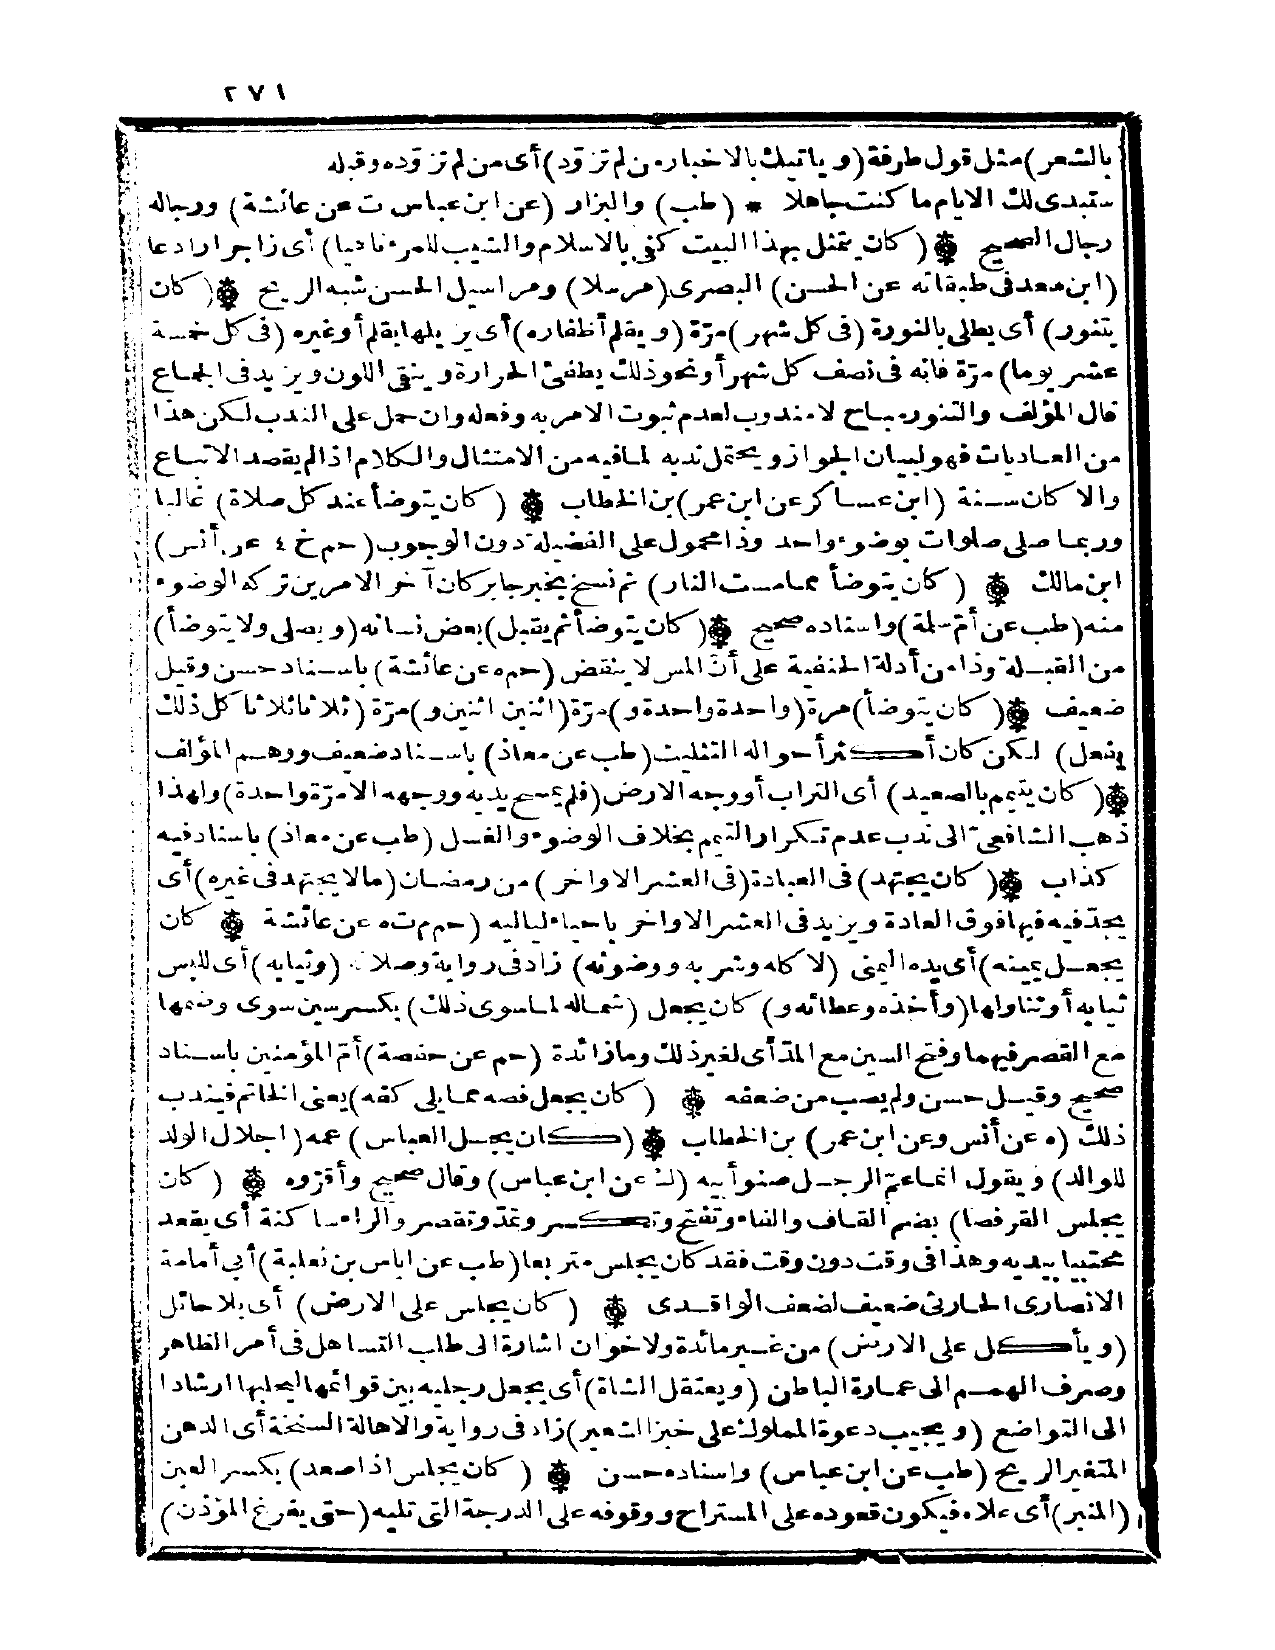 ٢٧١
بالشعر) مثل قول طرفة (ويأتيك بالاخبار من لم تزود) أى من لم تزوده وقبله
ستبدى لك الايام ما كنت جاهلا * (طب) والبزار (عن ابن عباس ت عن عائشة) ورجاله
رجال الصحيح (كان يتمثل بهذا البيت كفى بالاسلام والشيب للمرء ناهيا) أى زاجرا رادعا
(ابن سعد فى طبقاته عن الحسن) البصرى (مرسلا) ومراسيل الحسن شبه الريح (كان
يتنور) أى يطلى بالنورة (فى كل شهر) مرّة (ويقلم أظفاره) أى يزيلها بقلم أو غيره (فى كل خمسة
عشر يوما) مرّة فانه فى نصف كل شهر أو نحو ذلك يطفئ الحرارة وينقى اللون ويزيد فى الجماع
قال المؤلف والتنور مباح لا مندوب لعدم ثبوت الامر به وفعله وان حمل على الندب لكن هذا
من العاديات فهو لبيان الجواز ويحتمل ندبه لما فيه من الامتثال والكلام اذا لم يقصد الاتباع
والا كان سنة (ابن عساكر عن ابن عمر) بن الخطاب (كان يتوضأ عند كل صلاة) غالبا
وربما صلى صلوات بوضوء واحد وذا محمول على الفضيلة دون الوجوب (حم خ ٤ عن أنس)
ابن مالك (كان يتوضأ مما مست النار) ثم نسخ بخبر جابر كان آخر الامرين تركه الوضوء
منه (طب عن أم سلمة) واسناده صحيح (كان يتوضأ ثم يقبل) بعض نسائه (ويصلى ولا يتوضأ)
من القبلة وذا من أدلة الحنفية على أن المس لا ينقض (حم ه عن عائشة) باسناد حسن وقيل
ضعيف (كان يتوضأ) مرة (واحدة واحدة و) مرّة (اثنين اثنين و) مرّة (ثلاثا ثلاثا كل ذلك
يفعل) لكن كان أكثر أحواله التثليث (طب عن معاذ) باسناد ضعيف ووهم المؤلف
(كان يتيمم بالصعيد) أى التراب أو وجه الارض (فلم يمسح يديه ووجهه الا مرّة واحدة) ولهذا
ذهب الشافعى الى ندب عدم تكرار التيمم بخلاف الوضوء والغسل (طب عن معاذ) باسناد فيه
كذاب (كان يجتهد) فى العبادة (فى العشر الاواخر) من رمضان (ما لا يجتهد فى غيره) أى
يجدّ فيه فيها فوق العادة ويزيد فى العشر الاواخر باحياء لياليه (حم م ت ه عن عائشة كان
يجعل يمينه) أى يده اليمنى (لاكله وشربه ووضوئه) زاد فى رواية وصلاته (وثيابه) أى للبس
ثيابه أو تناولها (وأخذه وعطائه و) كان يجعل (شماله لما سوى ذلك) بكسر سين سوى وضمها
مع القصر فيهما وفتح السين مع المدّ أى لغير ذلك وما زائدة (حم عن حفصة) أمّ المؤمنين باسناد
صحيح وقيل حسن ولم يصب من ضعفه (كان يجعل فصه مما يلى كفه) يعنى الخاتم فيندب
ذلك (ه عن أنس وعن ابن عمر) بن الخطاب (كان يجل العباس) عمه (اجلال الولد
للوالد) ويقول انما عم الرجل صنو أبيه (ك عن ابن عباس) وقال صحيح وأقرّوه (كان
يجلس القرفصا) بضم القاف والفاء وتفتح وتكسر وتمدّ وتقصر والراء ساكنة أى يقعد
محتبيا بيديه وهذا فى وقت دون وقت فقد كان يجلس متربعا (طب عن اياس بن ثعلبة) أبى أمامة
الانصارى الحارثى ضعيف لضعف الواقدى (كان يجلس على الارض) أى بلا حائل
(ويأكل على الارض) من غير مائدة ولا خوان اشارة الى طلب التساهل فى أمر الظاهر
وصرف الهمم الى عمارة الباطن (ويعتقل الشاة) أى يجعل رجليه بين قوائمها ليحلبها ارشادا
الى التواضع (ويجيب دعوة المملوك على خبز الشعير) زاد فى رواية والاهالة السنخة أى الدهن
المتغير الريح (طب عن ابن عباس) واسناده حسن (كان يجلس اذا صعد) بكسر العين
(المنبر) أى علاه فيكون قعوده على المستراح ووقوفه على الدرجة التى تليه (حتى يفرغ المؤذن)